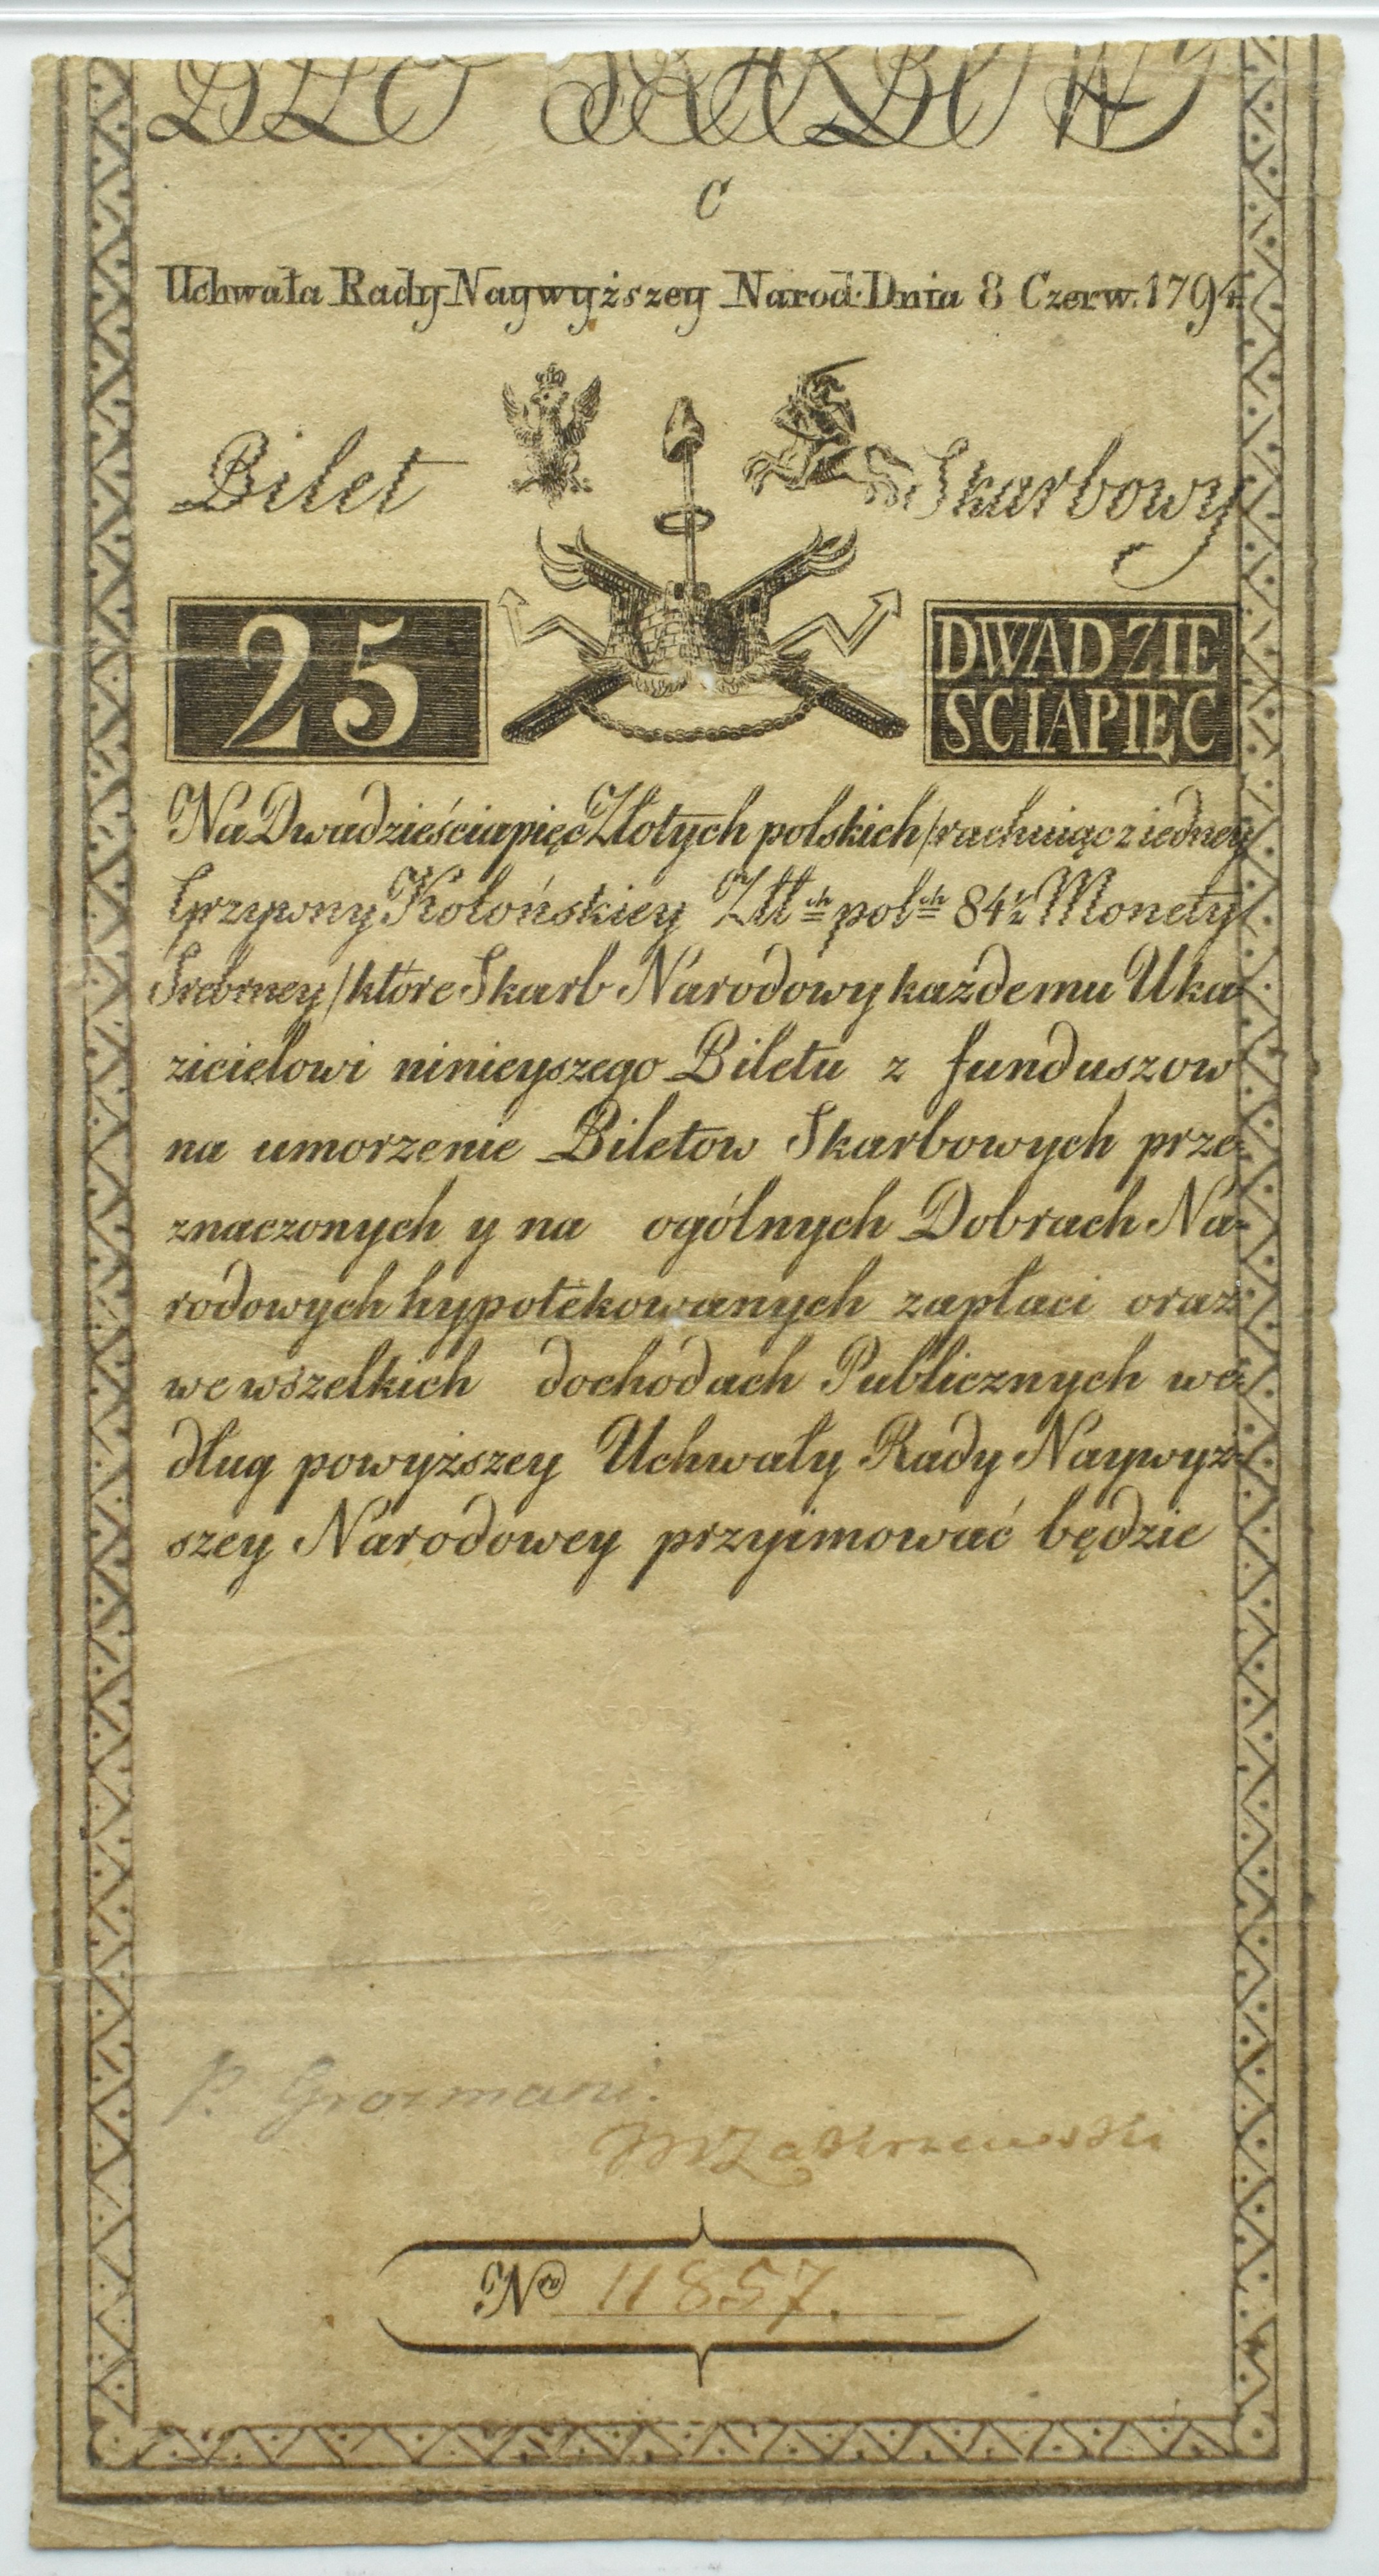 BILET SKARBOWY
C
Uchwała Rady Naywyższey Narod: Dnia 8 Czerw. 1794 r.
Bilet Skarbowy
25 DWADZIE
SCIAPIĘC
Na Dwadzieściapięć Złotych polskich /:rachuiąc z iedney
Grzywny Kolońskiey Złłch polch 84½ Monety
Srebrney:/ które Skarb Narodowy każdemu Uka
zicielowi ninieyszego Biletu z funduszow
na umorzenie Biletow Skarbowych prze=
znaczonych y na ogólnych Dobrach Na=
rodowych hypotekowanych zapłaci oraz
we wszelkich dochodach Publicznych we=
dług powyższey Uchwały Rady Naywyż=
szey Narodowey przyimować będzie
P. Grozmani.
MZakrzewski
Nro 11857.